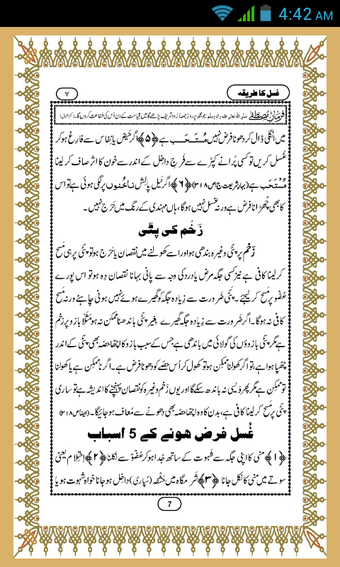 4:42 AM
غسل کا طریقہ
۷
میں انگلی ڈال کر دھونا فرض نہیں مُستَحَب ہے ﴿۵﴾ اگر حیض یا نِفاس سے فارغ ہو کر
غسل کریں تو کسی پُرانے کپڑے سے فَرجِ داخِل کے اندر سے خون کا اثر صاف کر لینا
مُستَحَب ہے (بہارِ شریعت ج۱ص۳۱۸) ﴿۶﴾ اگر نَیل پالِش ناخُنوں پر لگی ہوئی ہے تو اس
کا بھی چُھڑانا فرض ہے ورنہ غسل نہیں ہو گا، ہاں مہندی کے رنگ میں حَرَج نہیں۔
زَخْم کی پٹّی
زَخم پر پٹّی وغیرہ بندھی ہو اور اسے کھولنے میں نقصان یا حَرَج ہو تو پٹّی پر ہی مَسح
کر لینا کافی ہے نیز کسی جگہ مرض یا درد کی وجہ سے پانی بہانا نقصان دِہ ہو تو اس پورے
عُضْو پر مَسح کر لیجئے۔ پٹّی ضَرورت سے زیادہ جگہ کو گھیرے ہوئے نہیں ہونی چاہئے ورنہ مَسح
کافی نہ ہو گا۔ اگر ضَرورت سے زیادہ جگہ گھیرے بغیر پٹّی باندھنا ممکن نہ ہو مَثَلًا بازو پر زخم
ہے مگر پٹّی بازوؤں کی گولائی میں باندھی ہے جس کے سبب بازو کا اچھا حصّہ بھی پٹّی کے اندر
چُھپا ہوا ہے، تو اگر کھولنا ممکِن ہو تو کھول کر اُس حصّے کو دھونا فرض ہے۔ اگر ناممکِن ہے یا کھولنا
تو ممکِن ہے مگر پھر وَیسی نہ باندھ سکے گا اور یوں زخم وغیرہ کو نقصان پہنچنے کا اندیشہ ہے تو ساری
پٹّی پر مَسح کر لینا کافی ہے، بدن کا وہ اچھا حصّہ بھی دھونے سے مُعاف ہو جائیگا۔ (ایضاً ص۳۱۸)
غُسل فرض ہونے کے 5 اسباب
﴿۱﴾ مَنی کا اپنی جگہ سے شَہوت کے ساتھ جُدا ہو کر عُضْو سے نکلنا ﴿۲﴾ احتِلام یعنی
سوتے میں مَنی کا نکل جانا ﴿۳﴾ شَرمگاہ میں حَشفہ (سُپاری) داخِل ہو جانا خواہ شہوت ہو یا
7